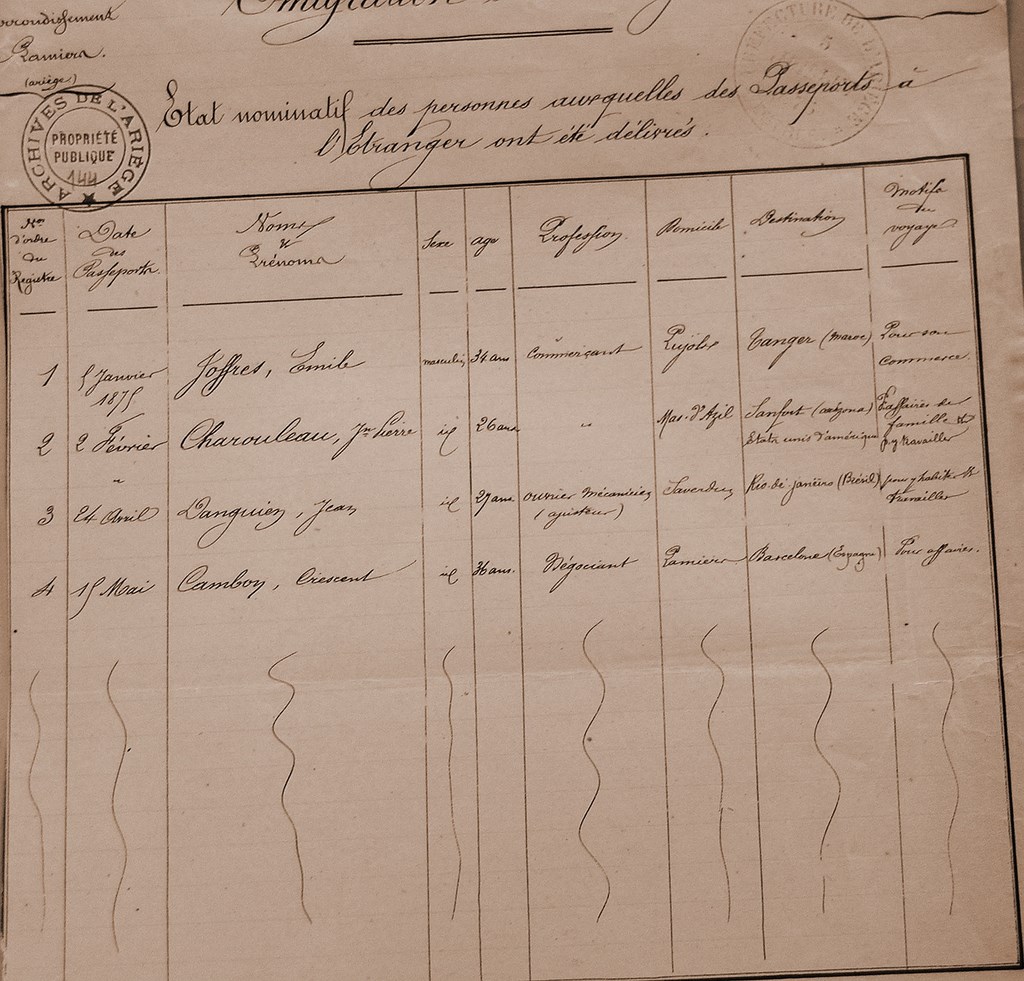 arrondissement
Pamiers.
(ariège)
Emigration
ARCHIVES DE L'ARIÈGE
PROPRIÉTÉ
PUBLIQUE
144
PRÉFECTURE DE L'ARIÈGE
Etat nominatif des personnes auxquelles des Passeports à
l'Etranger ont été délivrés.
Nos d'ordre du Registre
Date des Passeports.
Noms & Prénoms
Sexe
age
Profession
Domicile
Destination
Motifs du voyage.
1 5 Janvier 1875 Joffres, Emile masculin 34 ans Commerçant Pujols Tanger (Maroc) Pour son commerce.
2 2 Février Charouleau, Jn Pierre id 26 ans " Mas-d'Azil Sanfort (arizona) Etats unis d'amérique P. affaires de famille & p. y travailler
"
3 24 Avril Danguien, Jean id 27 ans ouvrier mécanicien (ajusteur) Saverdun Rio de janeiro (Brésil) pour y habiter & travailler
4 15 Mai Cambon, Crescent id 36 ans. Négociant Pamiers Barcelone (Espagne) Pour affaires.